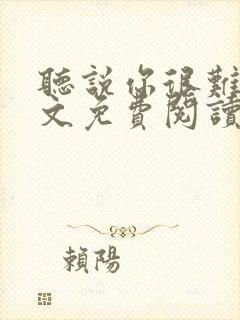 聽說你很難
文免費閱讀
賴陽